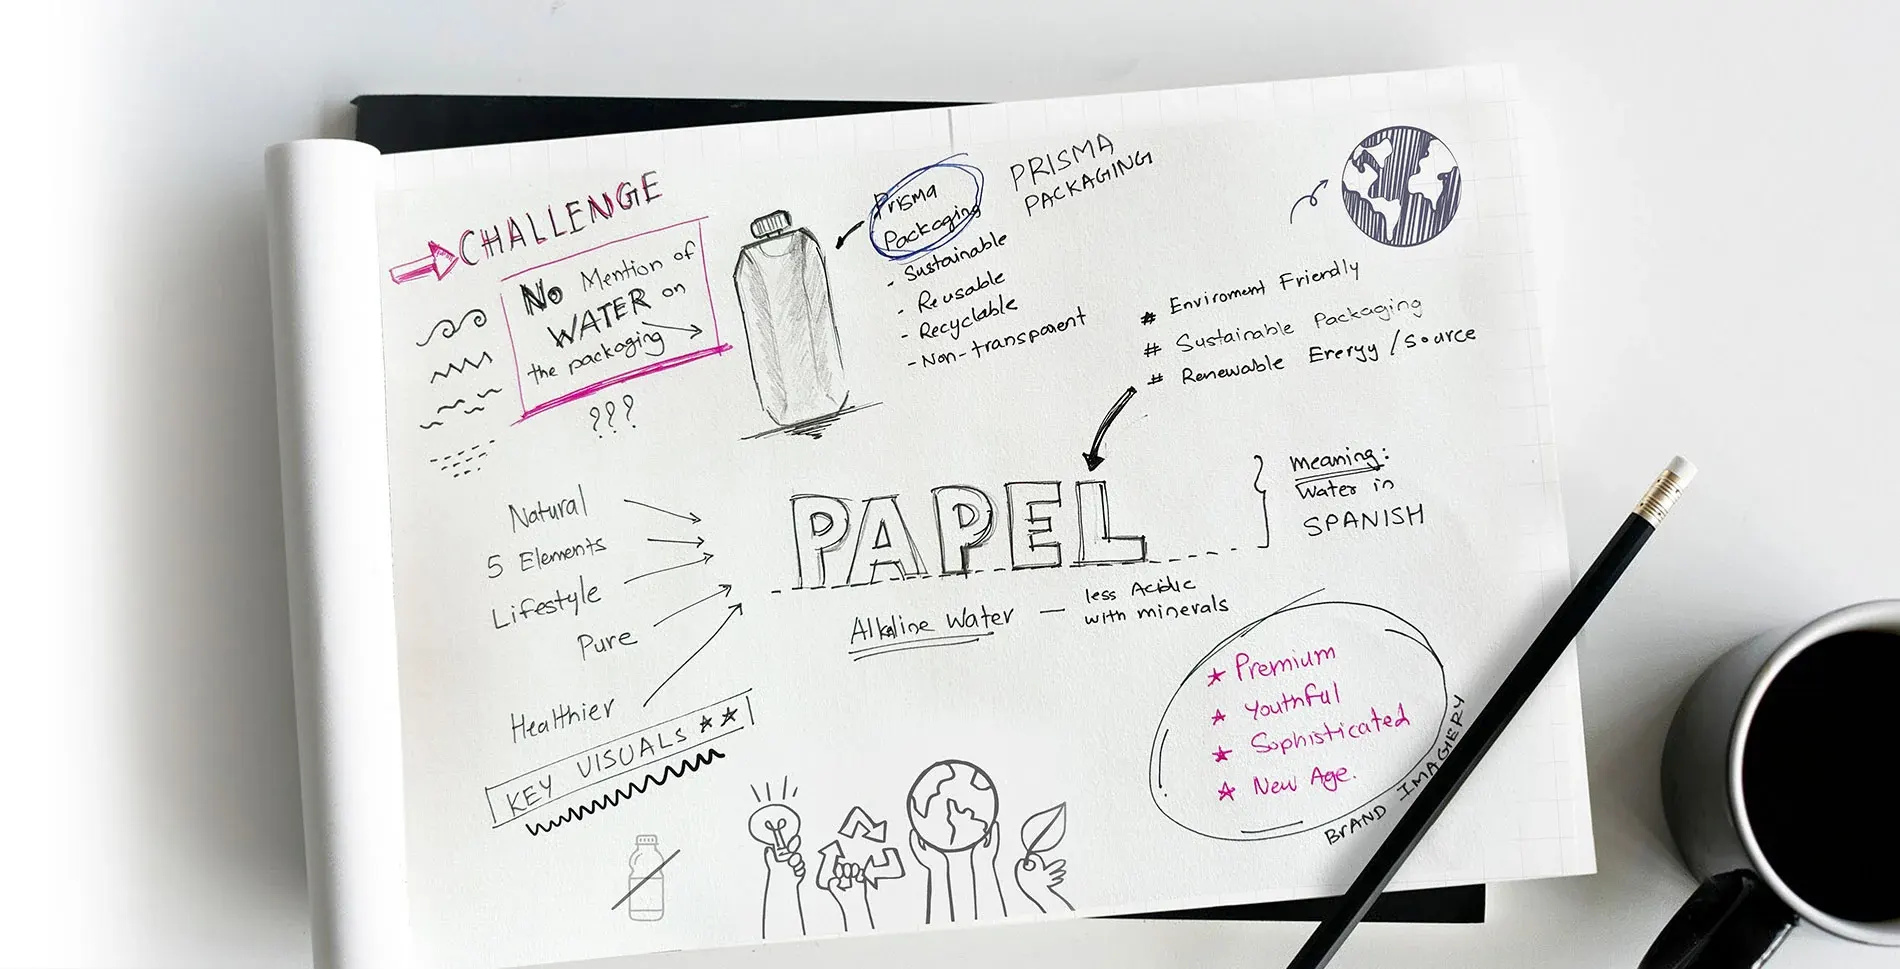 CHALLENGE
No Mention of
WATER on
the packaging
???
Prisma
Packaging
- Sustainable
- Reusable
- Recyclable
- Non-transparent
PRISMA
PACKAGING
# Enviroment Friendly
# Sustainable Packaging
# Renewable Energy / Source
Natural
5 Elements
Lifestyle
Pure
Healthier
PAPEL
Alkaline Water — less Acidic
with minerals
Meaning:
Water in
SPANISH
KEY VISUALS
Premium
Youthful
Sophisticated
New Age.
BRAND IMAGERY